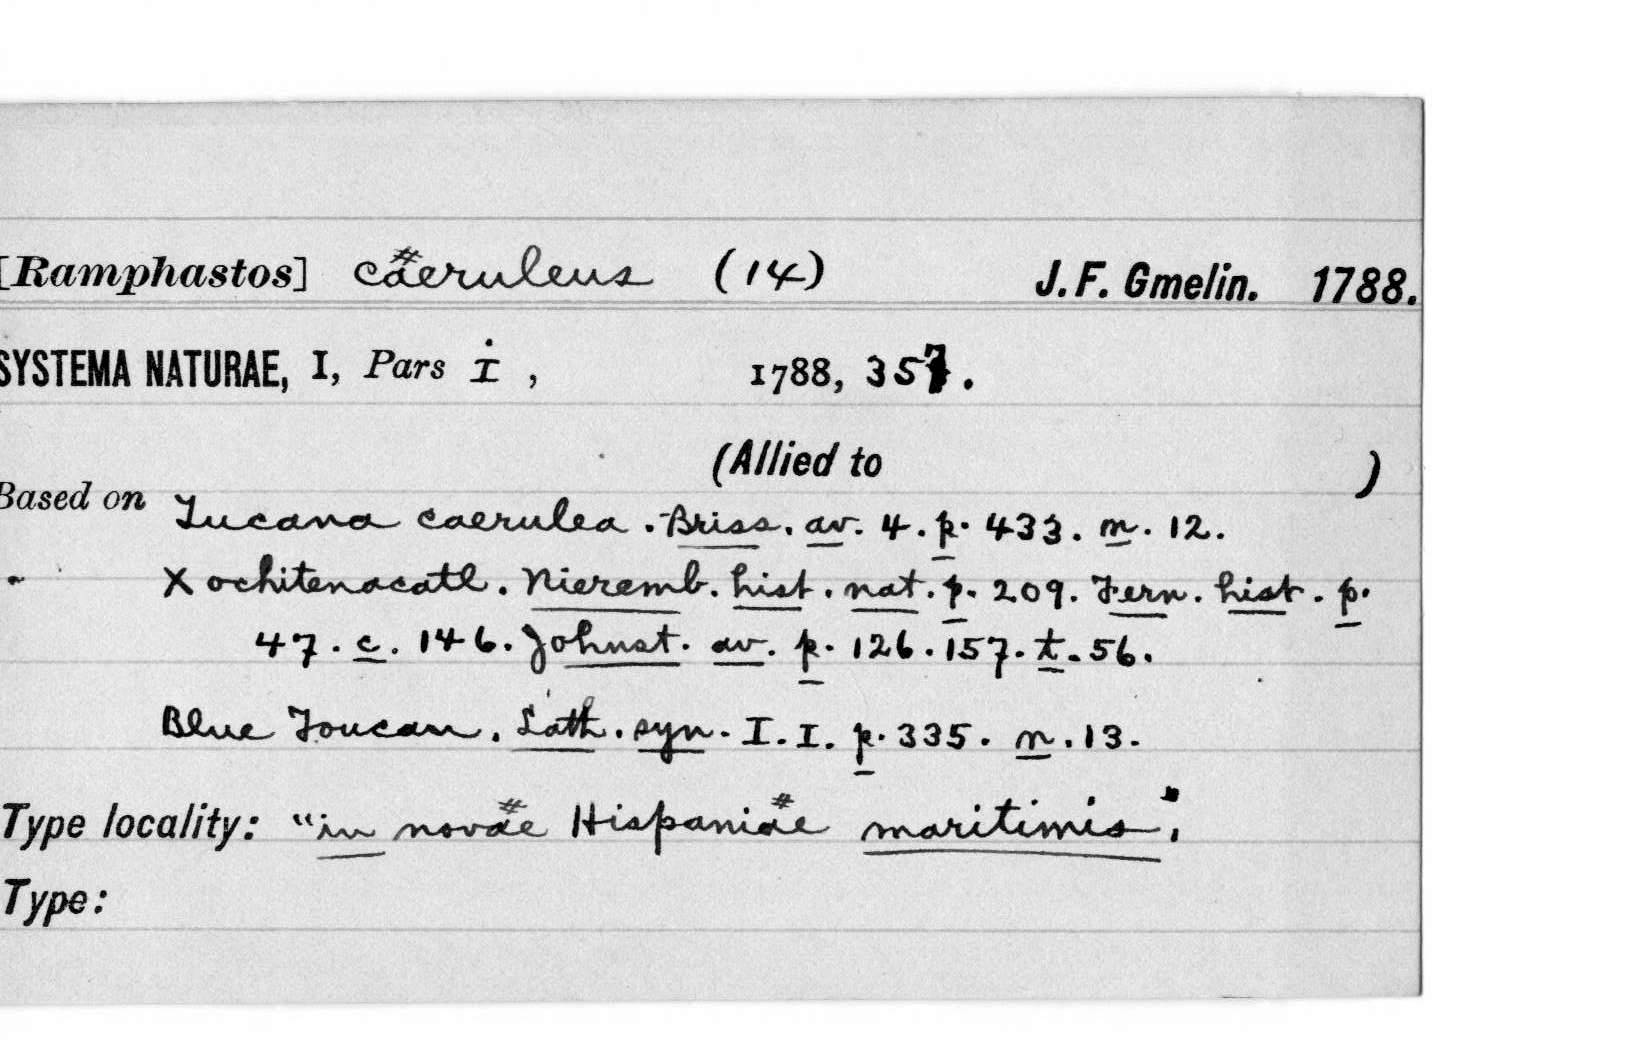 [Ramphastos] caeruleus (14) J. F. Gmelin. 1788.
SYSTEMA NATURAE, I, Pars i , 1788, 357.
(Allied to )
Based on Tucana caerulea . Briss. av. 4. p. 433. n. 12.
Xochitenacatl. Nieremb. hist. nat. p. 209. Fern. hist. p.
47. c. 146. Johnst. av. p. 126. 157. t. 56.
Blue Toucan. Lath. syn. I. I. p. 335. n. 13.
Type locality: "in novae Hispaniae maritimis".
Type: